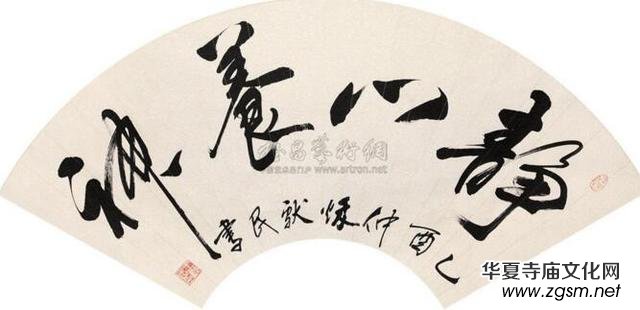 静心養神
乙酉仲秋献民書
雅昌藝術網
www.artron.net
华夏寺庙文化网
www.zgsm.net